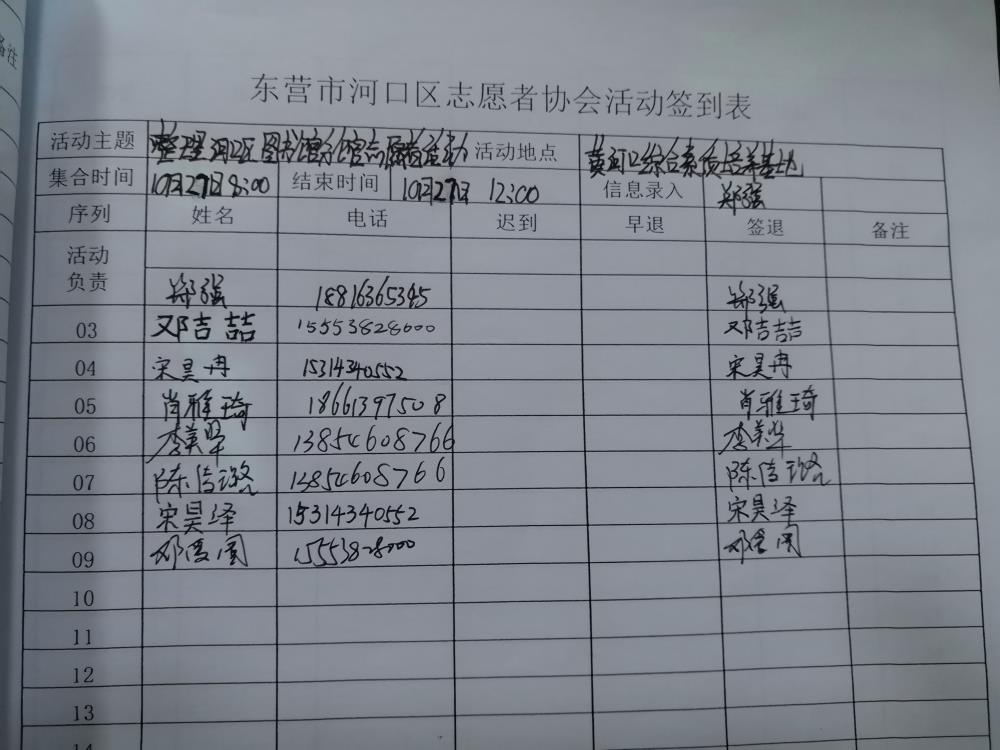 备注
东营市河口区志愿者协会活动签到表
活动主题 整理河口区图书馆分馆志愿者活动 活动地点 黄河口综合素质培养基地
集合时间 10月27日8:00 结束时间 10月27日 12:00 信息录入 郑强
序列 姓名 电话 迟到 早退 签退 备注
活动
负责 郑强 18816365345 郑强
03 邓吉喆 15553828000 邓吉喆
04 宋昊冉 15314340552 宋昊冉
05 肖雅琦 18661397508 肖雅琦
06 李美华 13854608766 李美华
07 陈信璐 13854608766 陈信璐
08 宋昊泽 15314340552 宋昊泽
09 邓 15553828000 邓
10
11
12
13
14